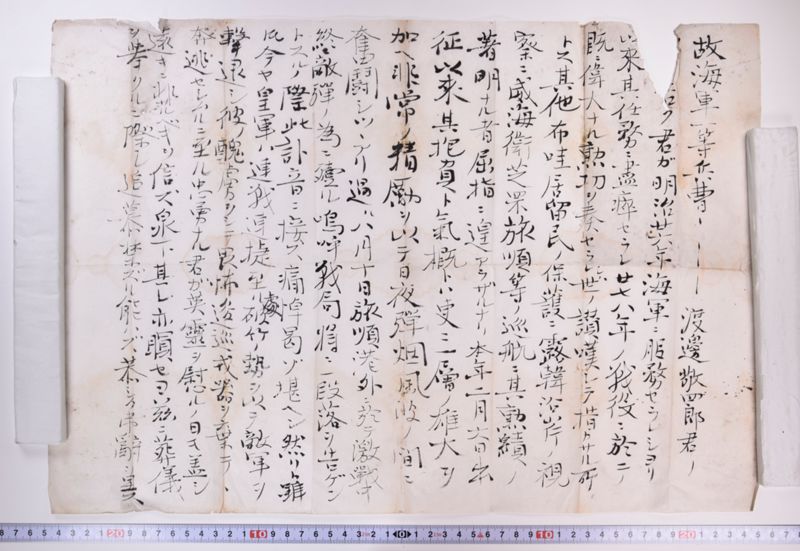 故海軍一等兵曹ー ーー 渡邊敬四郎君ノ
君ガ明治廿六年海軍ニ服務セラレシヨリ
以来其任務ニ盡瘁セラレ廿七八年ノ戦役ニ於テ
既ニ偉大ナル勲功ヲ奏セラレ世ノ讃嘆シテ措カサル所
トス其他布哇居留民ノ保護ニ露韓沿岸ノ視
察ニ威海衛芝罘旅順等ノ巡航ニ其勲績ノ
著明ナル者屈指ニ遑アラザルナリ本年二月六日出
征以来其抱負ト氣概ハ更ニ一層ノ雄大ヲ
加ヘ非常ノ精励ヲ以テ日夜弾烟風波ノ間ニ
奮闘シツヽアリ過ル八月十日旅順港外ニ於ケル激戦中
終敵弾ノ為ニ殪ル嗚呼戦局将ニ一段落ヲ告ゲン
トスルノ際此訃音ニ接ス痛悼曷ゾ堪ヘン然リト雖
氏今ヤ皇軍ハ連戦連捷破竹ノ勢ヲ以テ敵軍ヲ
撃退シ彼ノ醜虜ヲシテ畏怖逡巡戎器ヲ棄テ
奔逃セシムルニ至ル忠勇ナル君ガ英霊ヲ慰ムルノ日モ蓋シ
遠キニ非ザルヲ信ズ泉下其レ亦瞑セヨ茲ニ葬儀
ヲ挙クルニ際シ追慕禁ズル能ハズ恭シク弔辞ヲ